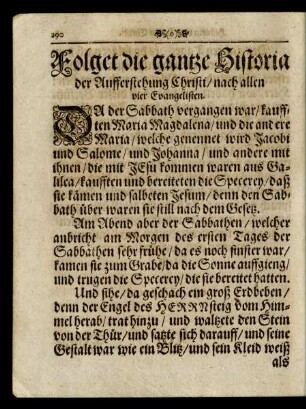 290
Folget die gantze Historia
der Aufferstehung Christi/ nach allen
vier Evangelisten.
DA der Sabbath vergangen war/ kauff-
ten Maria Magdalena/ und die andere
Maria/ welche genennet wird Jacobi
und Salome/ und Johanna/ und andere mit
ihnen/ die mit JEsu kommen waren aus Ga-
lilea/ kaufften und bereiteten die Specerey/ daß
sie kämen und salbeten Jesum/ denn den Sab-
bath über waren sie still nach dem Gesetz.
Am Abend aber der Sabbathen/ welcher
anbricht am Morgen des ersten Tages der
Sabbathen sehr frühe/ da es noch finster war/
kamen sie zum Grabe/ da die Sonne auffgieng/
und trugen die Specerey/ die sie bereitet hatten.
Und sihe/ da geschach ein groß Erdbeben/
denn der Engel des HERRN steig vom Him-
mel herab/ trat hinzu/ und waltzete den Stein
von der Thür/ und satzte sich darauff/ und seine
Gestalt war wie ein Blitz/ und sein Kleid weiß
als